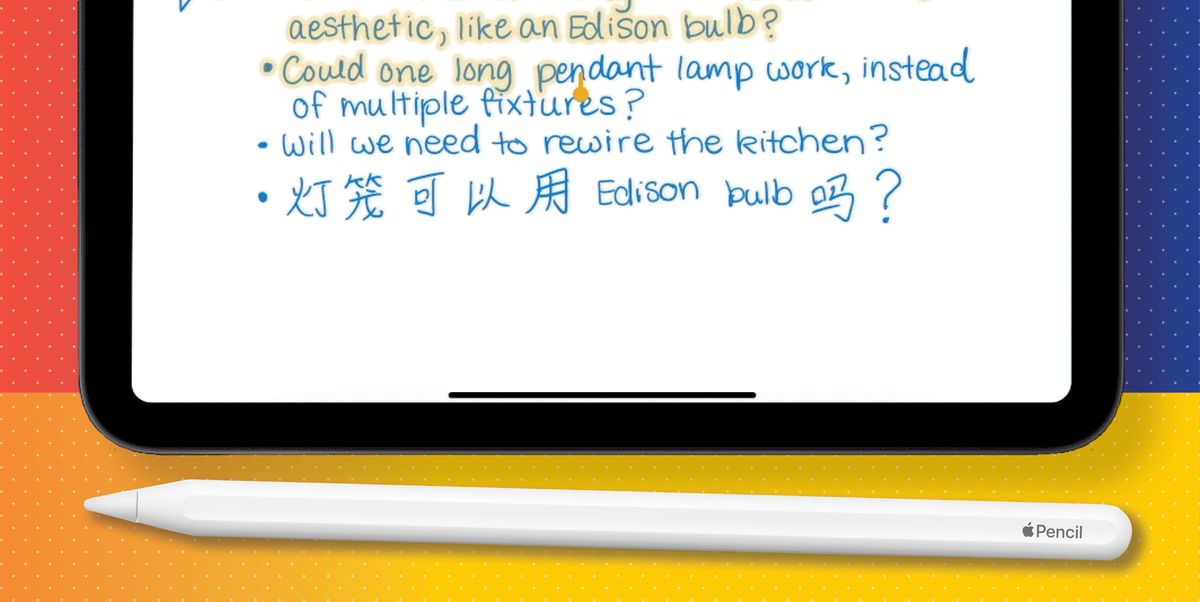 aesthetic, like an Edison bulb?
• Could one long pendant lamp work, instead
of multiple fixtures?
• Will we need to rewire the kitchen?
• 灯笼可以用 Edison bulb 吗?
Pencil